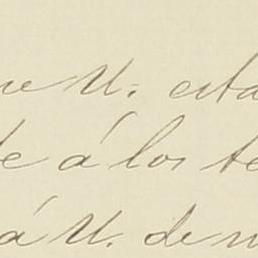 ue U. esta
de á los te
á U. de m